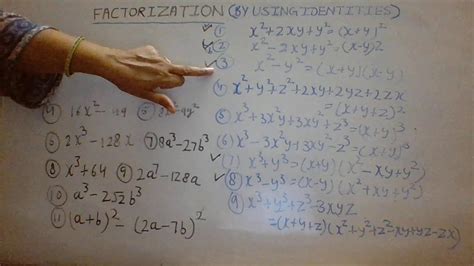 FACTORIZATION (BY USING IDENTITIES)
① x²+2xy+y² = (x+y)²
② x²-2xy+y² = (x-y)²
③ x²-y² = (x+y)(x-y)
④ x²+y²+z²+2xy+2yz+2zx
= (x+y+z)²
⑤ x³+3x²y+3xy²+z³ = (x+y)³
⑥ x³-3x²y+3xy²-z³ = (x-y)³
⑦ x³+y³ = (x+y)(x²-xy+y²)
⑧ x³-y³ = (x-y)(x²+xy+y²)
⑨ x³+y³+z³-3xyz
= (x+y+z)(x²+y²+z²-xy-yz-zx)
16x²-49 ⑤ 8x²-4y²
⑥ 2x³-128x ⑦ 8a³-27b³
⑧ x³+64 ⑨ 2a³-128a
⑩ a³-2√2b³
⑪ (a+b)²-(2a-7b)²